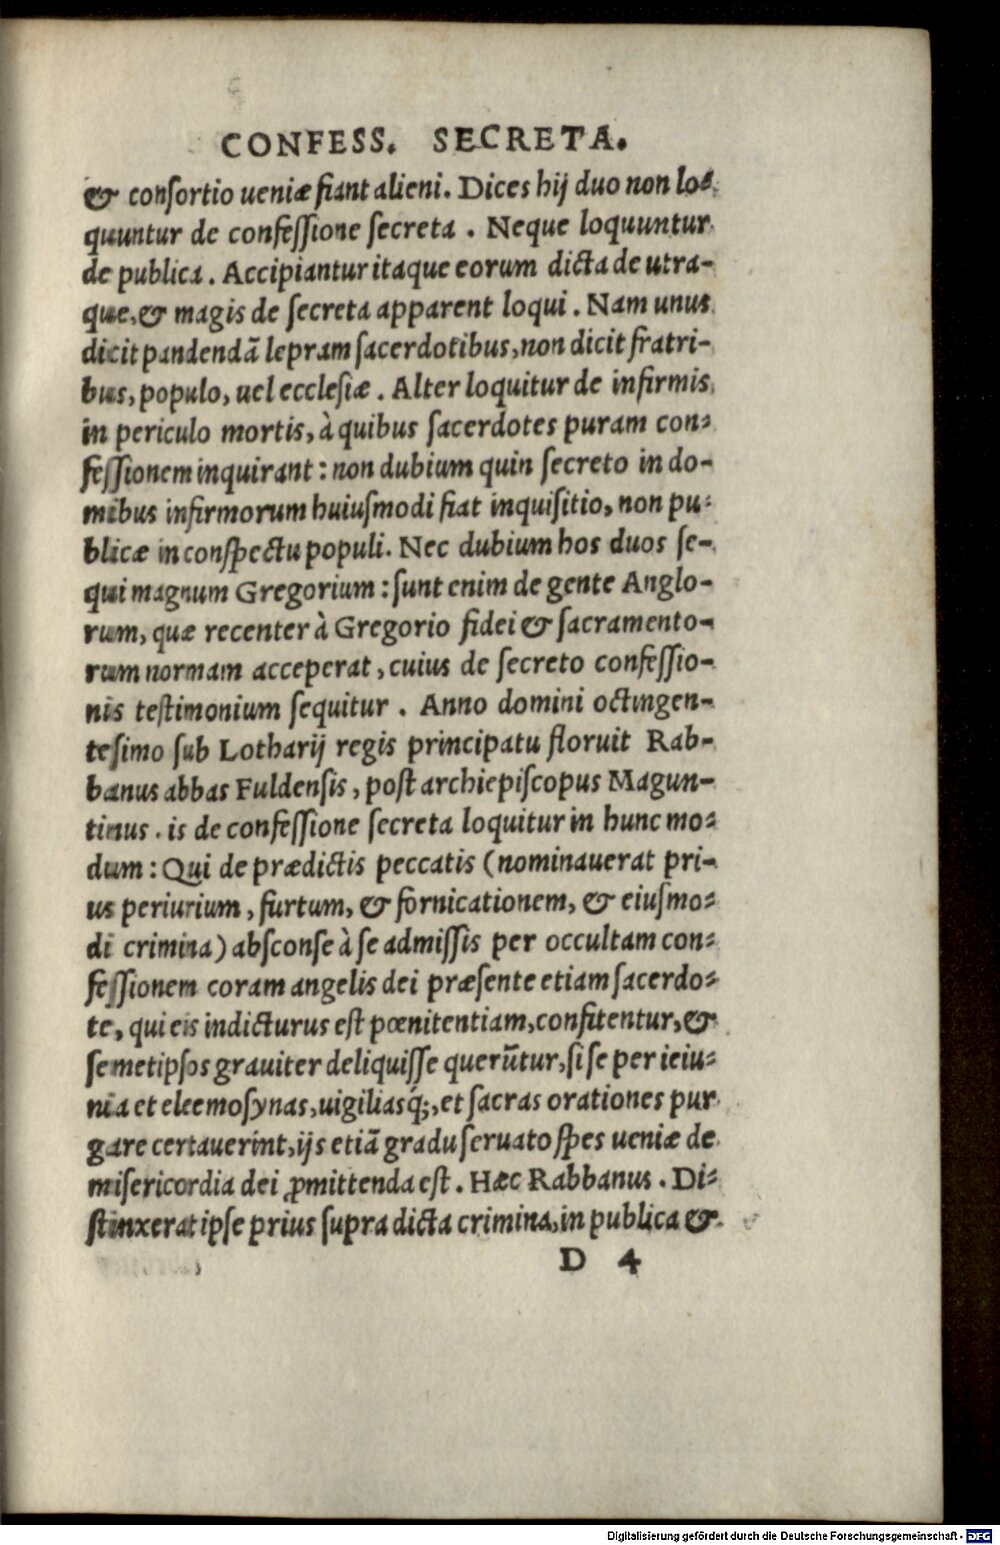 CONFESS. SECRETA.
& conſortio ueniæ fiant alieni. Dices hij duo non lo⸗
quuntur de confeſſione ſecreta . Neque loquuntur
de publica . Accipiantur itaque eorum dicta de utra-
que, & magis de ſecreta apparent loqui . Nam unus
dicit pandendã lepram ſacerdotibus, non dicit fratri-
bus, populo, uel eccleſiæ . Alter loquitur de infirmis
in periculo mortis, à quibus ſacerdotes puram con⸗
feſſionem inquirant : non dubium quin ſecreto in do-
mibus infirmorum huiuſmodi fiat inquiſitio, non pu⸗
blicæ in conſpectu populi. Nec dubium hos duos ſe-
qui magnum Gregorium : ſunt enim de gente Anglo-
rum, quæ recenter à Gregorio fidei & ſacramento-
rum normam acceperat, cuius de ſecreto confeſſio-
nis teſtimonium ſequitur . Anno domini octingen-
teſimo ſub Lotharij regis principatu floruit Rab-
banus abbas Fuldenſis, poſt archiepiſcopus Magun-
tinus . is de confeſſione ſecreta loquitur in hunc mo⸗
dum : Qui de prædictis peccatis (nominauerat pri-
us periurium, furtum, & fornicationem, & eiuſmo⸗
di crimina) abſconſe à ſe admiſſis per occultam con⸗
feſſionem coram angelis dei præſente etiam ſacerdo⸗
te, qui eis indicturus eſt pœnitentiam, confitentur, &
ſemetipſos grauiter deliquiſſe querũtur, ſi ſe per ieiu⸗
nia et eleemoſynas, uigiliasq́;, et ſacras orationes pur
gare certauerint, ijs etiã gradu ſeruato ſpes ueniæ de
miſericordia dei ꝓmittenda eſt . Hæc Rabbanus . Di⸗
ſtinxerat ipſe prius ſupra dicta crimina, in publica &
D 4
Digitalisierung gefördert durch die Deutsche Forschungsgemeinschaft - DFG